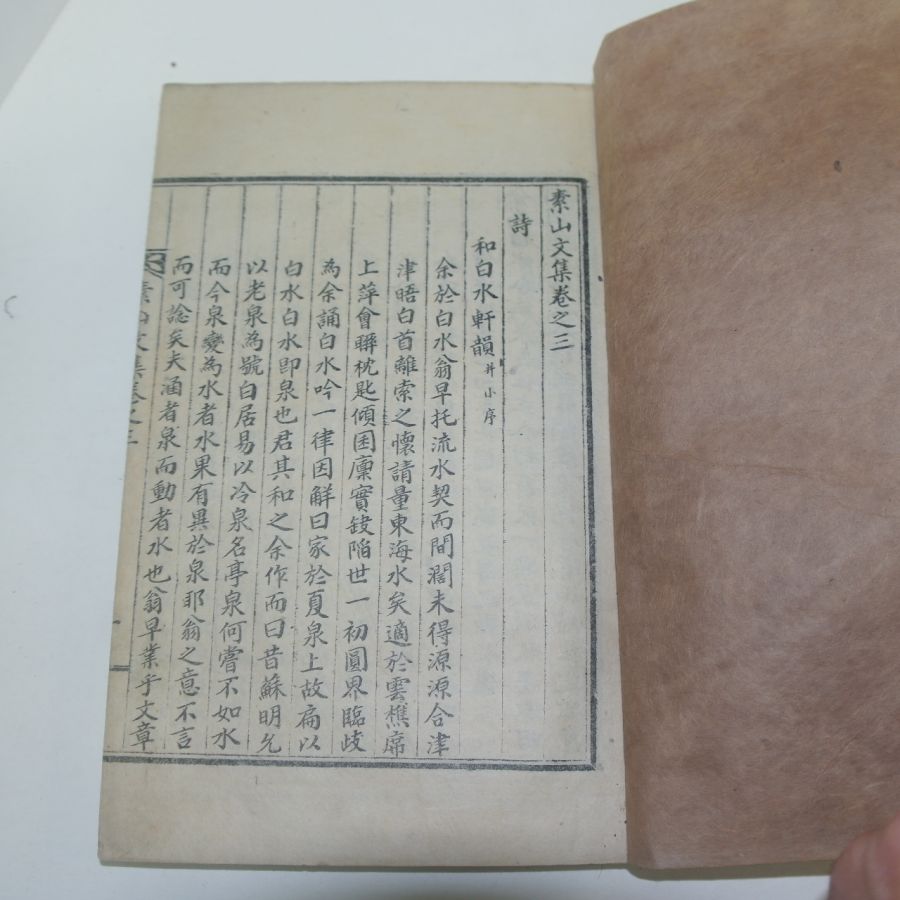 素山文集卷之三
詩
和白水軒韻 并小序
余於白水翁早托流水契而間濶未得源源合津
津晤白首離索之懷請量東海水矣適於雲樵席
上萍會聯枕匙傾囷廩實鼓陷世一初圓界臨歧
為余誦白水吟一律因解曰家於夏泉上故扁以
白水白水卽泉也君其和之余作而曰昔蘇明允
以老泉為號白居易以冷泉名亭泉何嘗不如水
而今泉變為水者水果有異於泉耶翁之意不言
而可諗矣夫涵者泉而動者水也翁早業乎文章
素山文集卷之三